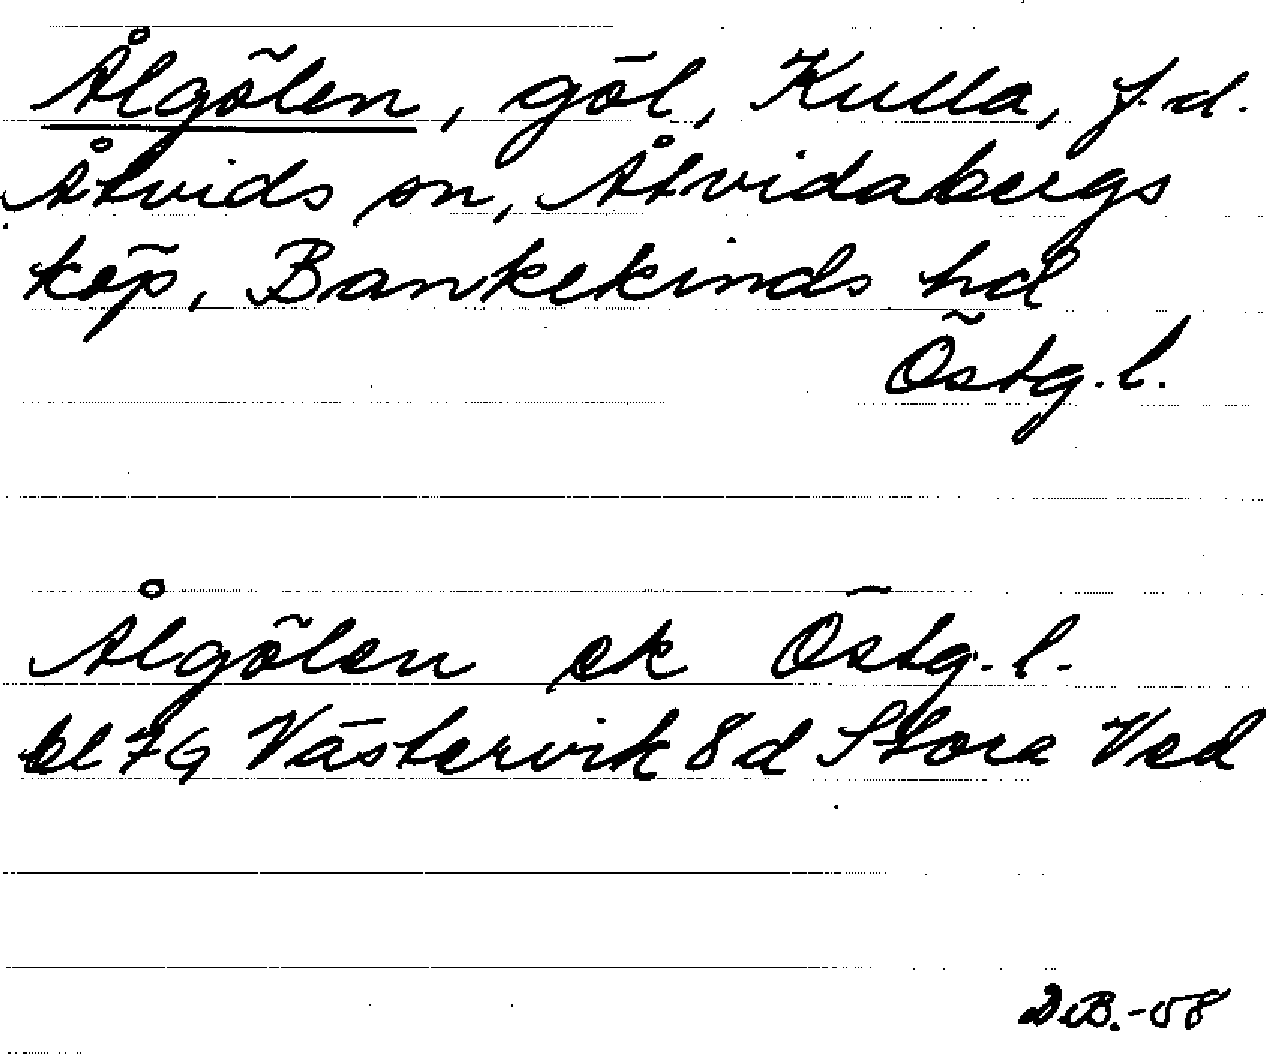 Ålgölen, göl, Kulla, f.d.
Åtvids sn, Åtvidabergs
köp, Bankekinds hd
Östg.l.
Ålgölen ek Östg.l.
bl 7G Västervik 8d Stora Ved
D.B.-58